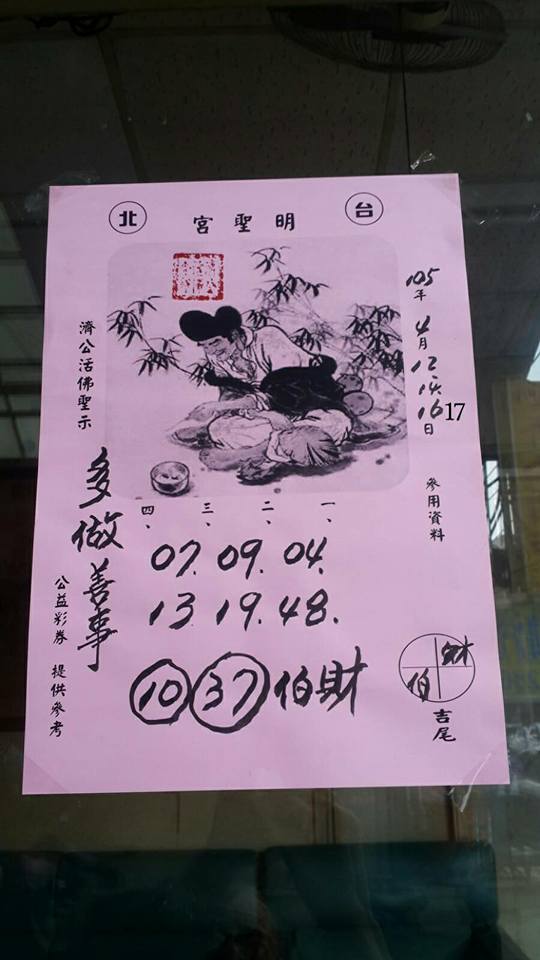 台北
明聖宮
105年4月12.14.16 17日
參用資料
濟公活佛聖示
一、二、三、四、
07. 09. 04.
13. 19. 48.
10 37 伯財
多做善事
公益彩券 提供參考
財
伯
吉尾